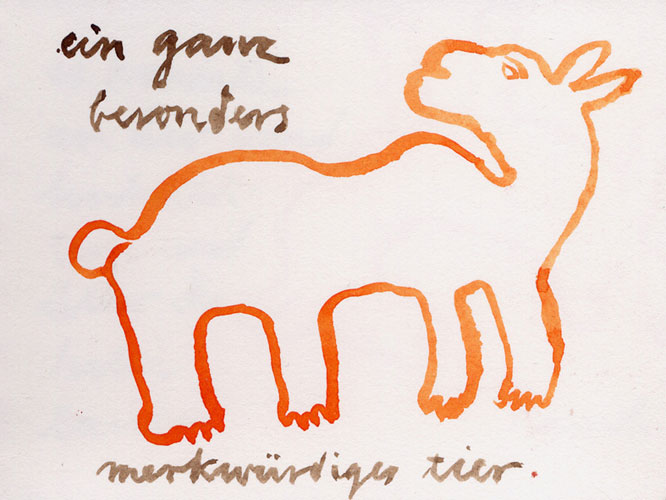 ein ganz
besonders
merkwürdiges tier.